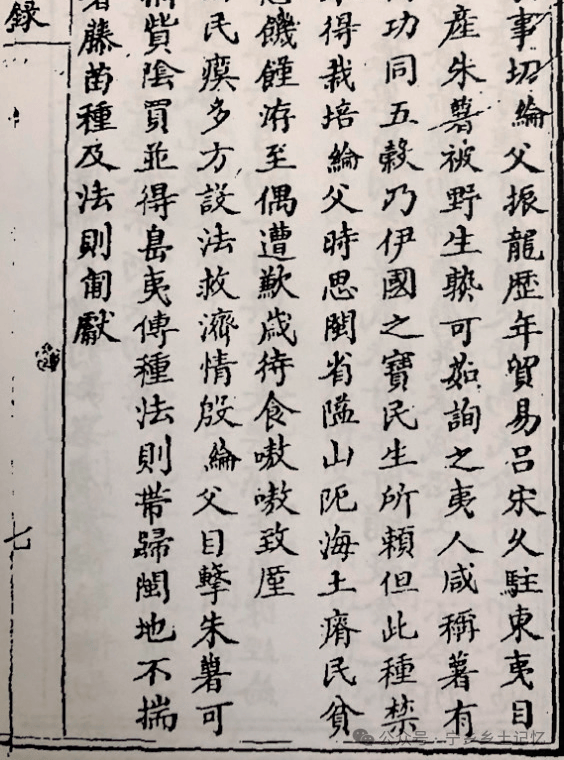 事切綸父振龍歷年貿易呂宋久駐東夷目
產朱薯被野生熟可茹詢之夷人咸稱薯有
功同五榖乃伊國之寶民生所賴但此種禁
得栽培綸父時思閩省隘山阨海土瘠民貧
饑饉洊至偶遭歉歲待食嗷嗷致厪
民瘼多方設法救濟情殷綸父目擊朱薯可
貲陰買並得島夷傳種法則帶歸閩地不揣
藤苗種及法則匍獻
錄
七
公众号·宁乡乡土记忆